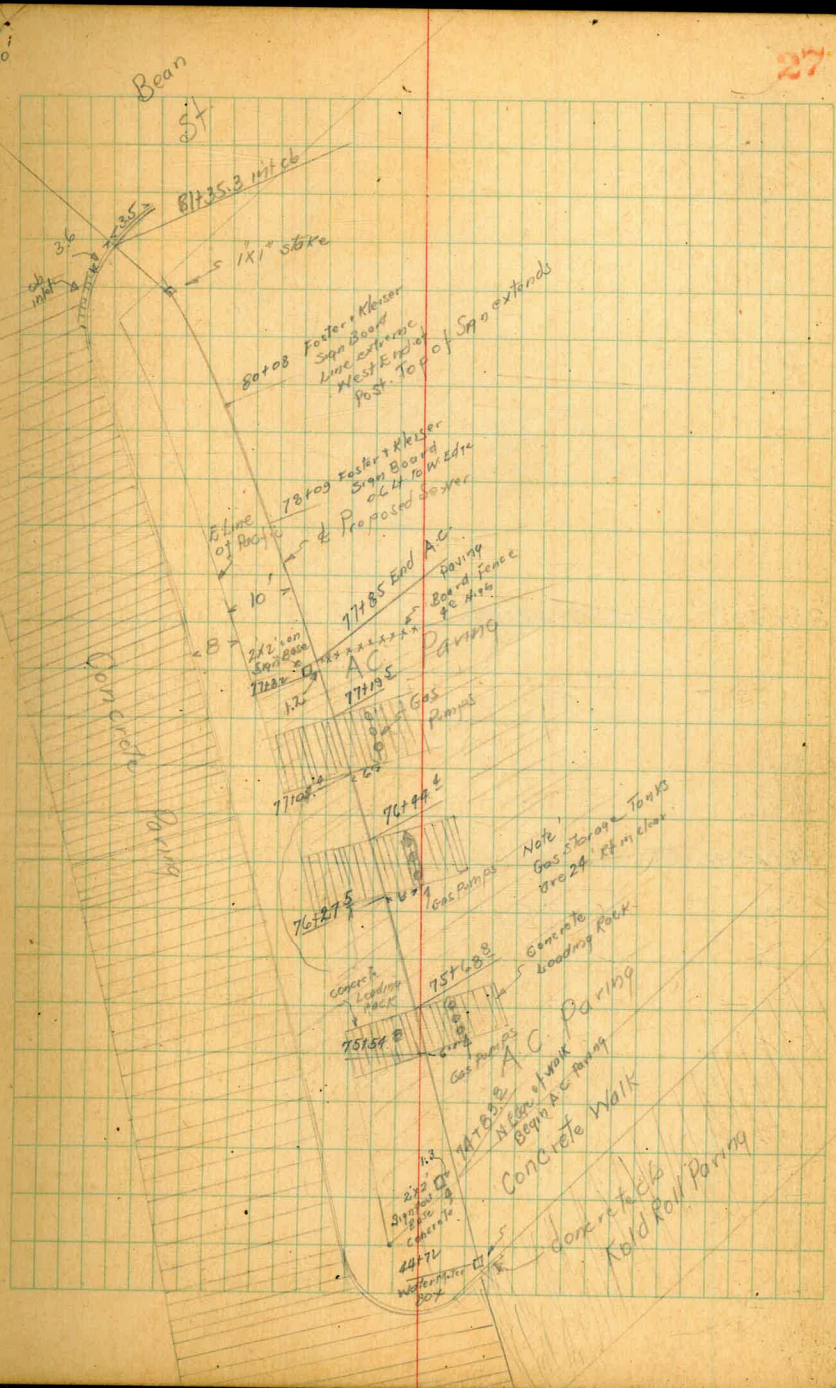 27
Bean
St
81+35.3 int cb
3.5
3.6
cb
inlet
1"x1" stake
80+08 Foster & Kleiser
Sign Board
Line extreme
West End of
Post. Top of Sgn extends
78+09 Foster & Kleiser
Sign Board
0.6 to W. Edge
℄ Proposed Sewer
E Line
of Pacific
10'
8
77+85 End A.C.
Paving
Board Fence
High
2'x2' on
Sign Base
1.2
A.C. Paving
77+19 5
Gas
Pumps
76+44 4
76+27 5
Gas Pumps
Note!
Gas Storage Tanks
are 24'
Concrete
Loading Rack
75+68 8
Concrete
Loading
Rack
75+54 8
Gas Pumps
A C Paving
74+83 8
N Edge of Walk
Begin A.C. Paving
Concrete Walk
1.3
2'x2'
Base
Concrete
44+72
Water Meter
Box
Concrete cb
Kold Roll Paving
Concrete
Paving